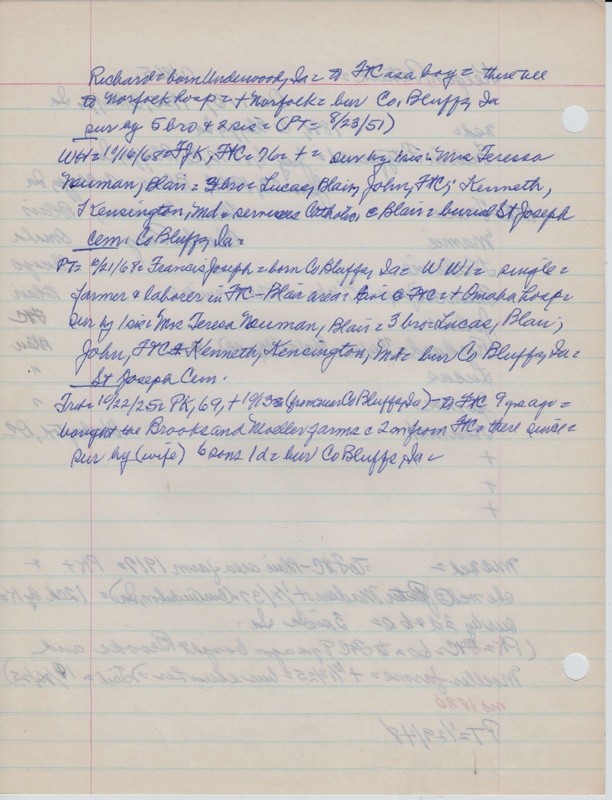 Richard = born Underwood, Ia = to FtC as a boy = there till
to Norfolk hosp = + Norfolk = bur Co. Bluffs, Ia
sur by 5 bro + 2 sis = (PT = 8/23/51)
WH = 10/16/68 = FJK, FtC = 76 = + = sur by 1 sis = Mrs Teressa
Neuman, Blair = 3 bro = Lucas, Blair, John, FtC; Kenneth,
Kensington, Md = services Catholic, c Blair = burial St Joseph
Cem. Co Bluffs, Ia =
PT = 10/21/68 = Francis Joseph = born Co Bluffs, Ia = WW1 = single =
farmer + laborer in FtC - Blair area = FtC = + Omaha hosp =
sur by 1 sis = Mrs Teresa Neuman, Blair = 3 bro = Lucas, Blair;
John, FtC + Kenneth, Kensington, Md = bur Co Bluffs, Ia =
St Joseph Cem.
Trib = 10/22/25 = PK, 69, + 10/13 = (from near Co Bluffs, Ia) - to FtC 9 yrs ago =
bought the Brooks and Moeller farms = 2 m from FtC = there since =
sur by (wife) 6 sons 1 d = bur Co Bluffs, Ia -